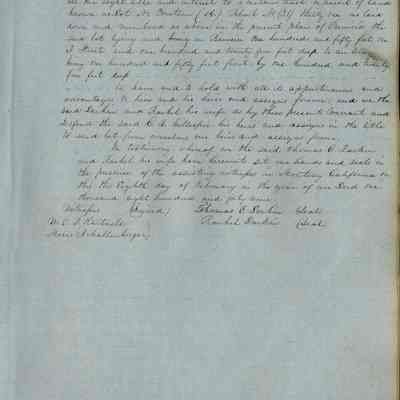 all our right title and interest to a certain tract or parcel of land
known as Lot No fourteen (14) Block No (31) thirty one as laid
down and numbered as above in the present plan of Benicia the
said lot lying and being in Benicia One hundred and fifty feet on
I Street and one hundred and twenty five feet deep to an alley
being one hundred and fifty feet front by one hundred and twenty
five feet deep
To have and to hold with all it appurtenances and
advantages to him and his heirs and assigns forever and we the
said Larkin and Rachel his wife do by these presents warrant and
defend the said C. A. Gillespie his heirs and assigns in the title
to said lot from ourselves our heirs and assigns forever.
In testimony whereof we the said Thomas O. Larkin
and Rachel his wife have hereunto set our hands and seals in
the presence of the assisting witnesses in Monterey California on
this the Eighth day of February in the year of our Lord one
thousand eight hundred and forty nine.
Witnesses (Signed) Thomas O Larkin (Seal)
W. E. P. Hartnell Rachel Larkin (Seal)
Moses Schallenberger